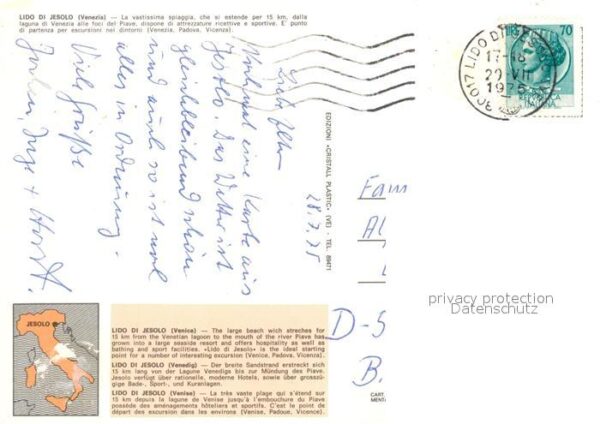 LIDO DI JESOLO (Venezia) — La vastissima spiaggia, che si estende per 15 km. dalla
laguna di Venezia alle foci del Piave, dispone di attrezzature ricettive e sportive. E' punto
di partenza per escursioni nei dintorni (Venezia, Padova, Vicenza).
70
30017 LIDO DI JESOLO
17-18
29 VII
1975
ITALIANA
Liebe Eltern
Noch mal eine Karte aus
Jesolo. Das Wetter ist
gleichbleibend schön
und auch so ist
alles in Ordnung.
Viele Grüße
Inge + Horst.
28.7.75
EDIZIONI «CRISTALL PLASTIC» (VE) - TEL. 89471
Fam
Al
L
D-5
B.
privacy protection
Datenschutz
JESOLO
LIDO DI JESOLO (Venice) — The large beach wich streches for
15 km from the Venetian lagoon to the mouth of the river Piava has
grown into a large seaside resort and offers hospitality as well as
bathing and sport facilities. «Lido di Jesolo» is the ideal starting
point for a number of interesting excursion (Venice, Padova, Vicenza).
LIDO DI JESOLO (Venedig) — Der breite Sandstrand erstreckt sich
15 km lang von der Lagune Venedigs bis zur Mündung des Piave.
Jesolo verfügt über rationelle, moderne Hotels, sowie über grosszü-
gige Bade-, Sport-, und Kuranlagen.
LIDO DI JESOLO (Venise) — La très vaste plage qui s'étend sur
15 km depuis la lagune de Venise jusqu'à l'embouchure du Piave
possède des aménagements hôteliers et sportifs. C'est le point de
départ des excursion dans les environs (Venise, Padoue, Vicence).
CART.
MENTA